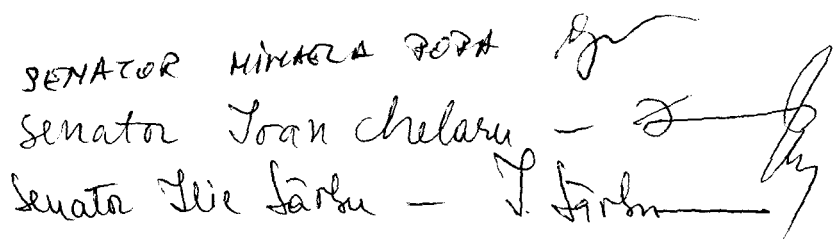 SENATOR MIHAELA POPA
Senator Ioan Chelaru –
Senator Ilie Sârbu – I. Sârbu